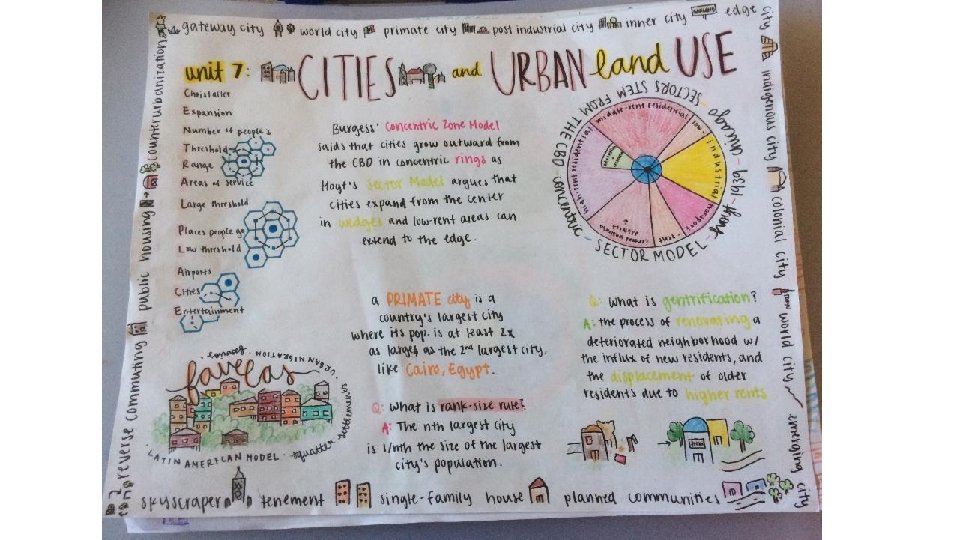 gateway city world city primate city post industrial city inner city edge city
indigenous city colonial city world city emerging city
counterurbanization
public housing
reverse commuting
unit 7: CITIES and URBAN land USE
Christaller
Expansion
Number of people's
Threshold
Range
Areas of service
Large threshold
Places people go
Low threshold
Airports
Cities
Entertainment
Burgess' Concentric Zone Model
said that cities grow outward from
the CBD in concentric rings as
Hoyt's Sector Model argues that
cities expand from the center
in wedges and low-rent areas can
extend to the edge.
SECTORS STEM FROM THE CBD
chicago
1939
Hoyt
SECTOR MODEL
middle-rent residential
industrial
high-rent residential
a PRIMATE city is a
country's largest city
where its pop. is at least 2x
as larges as the 2nd largest city,
like Cairo, Egypt.
Q: What is rank-size rule?
A: The nth largest city
is 1/nth the size of the largest
city's population.
Q: What is gentrification?
A: the process of renovating a
deteriorated neighborhood w/
the influx of new residents, and
the displacement of older
residents due to higher rents
favelas
URBAN MIGRATION
LATIN AMERICAN MODEL
squatter
skyscraper tenement single-family house planned communities